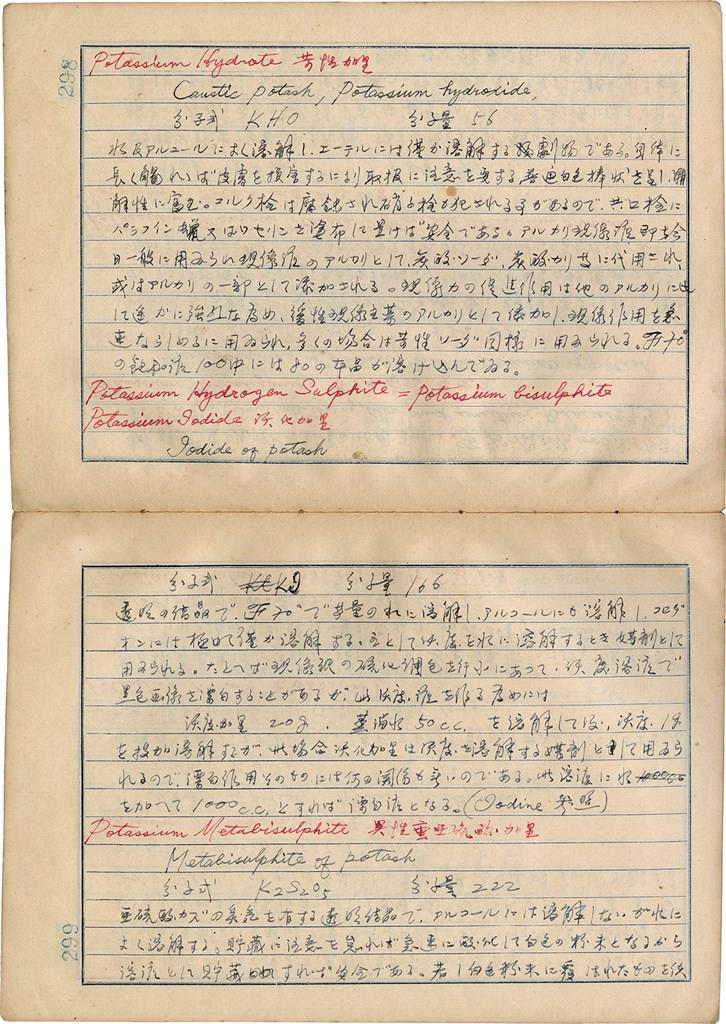 298
Potassium Hydrate 苛性加里
Caustic potash, Potassium hydroxide,
分子式 KHO 分子量 56
水及アルコールによく溶解し、エーテルには僅か溶解する劇物である。身体に
長く触れいば皮膚を損害するにより取扱に注意を要する。普通白色棒状を呈し、潮
解性に富む。コルク栓は腐蝕され硝子栓も犯される事があるので、共口栓に
パラフイン蝋又はワセリンを塗布して置けば安全である。アルカリ現像液即ち今
日一般に用ゐられ現像液のアルカリとして、炭酸ソーダ、炭酸カリ等に代用され、
或はアルカリの一部として添加される。現像力の促進作用は他のアルカリに比
して遙かに強烈な為め、緩性現像主薬のアルカリとして添加し、現像作用を急
速ならしめるに用ゐられ、多くの場合は苛性ソーダ同様に用ゐられる。F70°
の飽和液100中には80の本品が溶け込んでゐる。
Potassium Hydrogen Sulphite = Potassium bisulphite
Potassium Iodide 沃化加里
Iodide of potash
分子式 KI 分子量 166
透明の結晶で、F70°で等量の水に溶解し、アルコールにも溶解し、コロヂ
オンには極めて僅か溶解する。主として沃度を水に溶解するとき媒剤として
用ゐられる。たとへば現像紙の硫化調色を行ふにあつて、沃度溶液で
黒色画像を漂白することがあるが、此沃度液を作る為めには
沃度加里 20g. 蒸溜水 50c.c. を溶解して後、沃度 1g
を投加溶解するが、此場合沃化加里は沃度を溶解する媒剤として用ゐら
れるので、漂白作用そのものには何の関係も無いのである。此溶液に水
を加へて 1000c.c. とすれば漂白液となる。(Iodine 参照)
Potassium Metabisulphite 異性重亜硫酸加里
Metabisulphite of potash
分子式 K2S2O5 分子量 222
亜硫酸ガスの臭気を有する透明結晶で、アルコールには溶解しないが水に
よく溶解する。貯蔵に注意を怠れば急速に酸化して白色の粉末となるから
溶液として貯蔵すれば安全である。若し白色粉末に覆はれたものを供
299